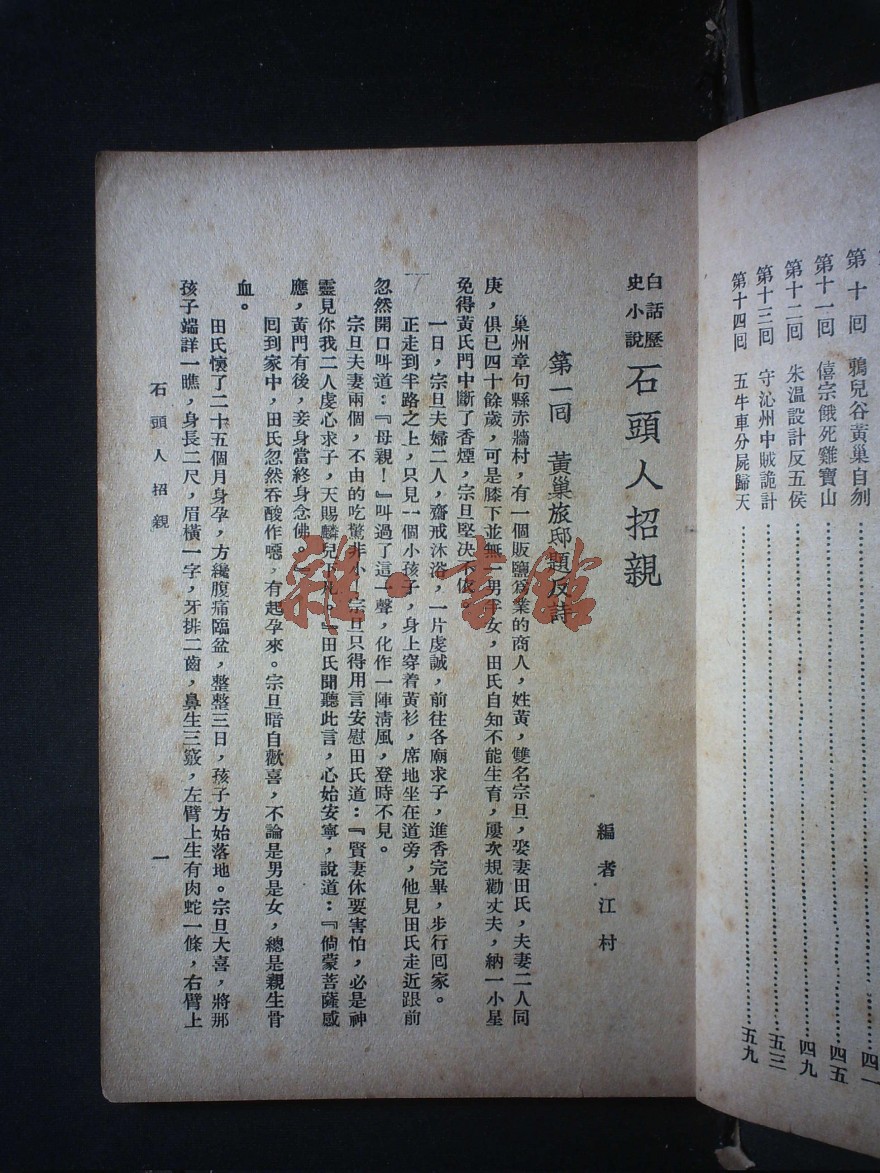 第十回　鴉兒谷黃巢自刎……四一
第十一回　僖宗餓死雞寶山……四五
第十二回　朱溫設計反五侯……四九
第十三回　守沁州中賊詭計……五三
第十四回　五牛車分屍歸天……五九
白話歷史小說　石頭人招親
編者江村
第一回　黃巢旅邸題反詩
巢州章句縣赤牆村，有一個販鹽爲業的商人，姓黃，雙名宗旦，娶妻田氏，夫妻二人同
庚，俱已四十餘歲，可是膝下並無一男半女，田氏自知不能生育，屢次規勸丈夫，納一小星
免得黃氏門中斷了香煙，宗旦堅決不依。
一日，宗旦夫婦二人，齋戒沐浴，一片虔誠，前往各廟求子，進香完畢，步行回家。
正走到半路之上，只見一個小孩子，身上穿着黃衫，席地坐在道旁，他見田氏走近跟前
忽然開口叫道：『母親！』叫過了這一聲，化作一陣清風，登時不見。
宗旦夫妻兩個，不由的吃驚非小，宗旦只得用言安慰田氏道：『賢妻休要害怕，必是神
靈見你我二人虔心求子，天賜麟兒下凡。』田氏聞聽此言，心始安寧，說道：『倘蒙菩薩感
應，黃門有後，妾身當終身念佛。』
回到家中，田氏忽然吞酸作噁，有起孕來。宗旦暗自歡喜，不論是男是女，總是親生骨
血。
田氏懷了二十五個月身孕，方纔腹痛臨盆，整整三日，孩子方始落地。宗旦大喜，將那
孩子端詳一瞧，身長二尺，眉橫一字，牙排二齒，鼻生三竅，左臂上生有肉蛇一條，右臂上
石頭人招親
一
雜·書館